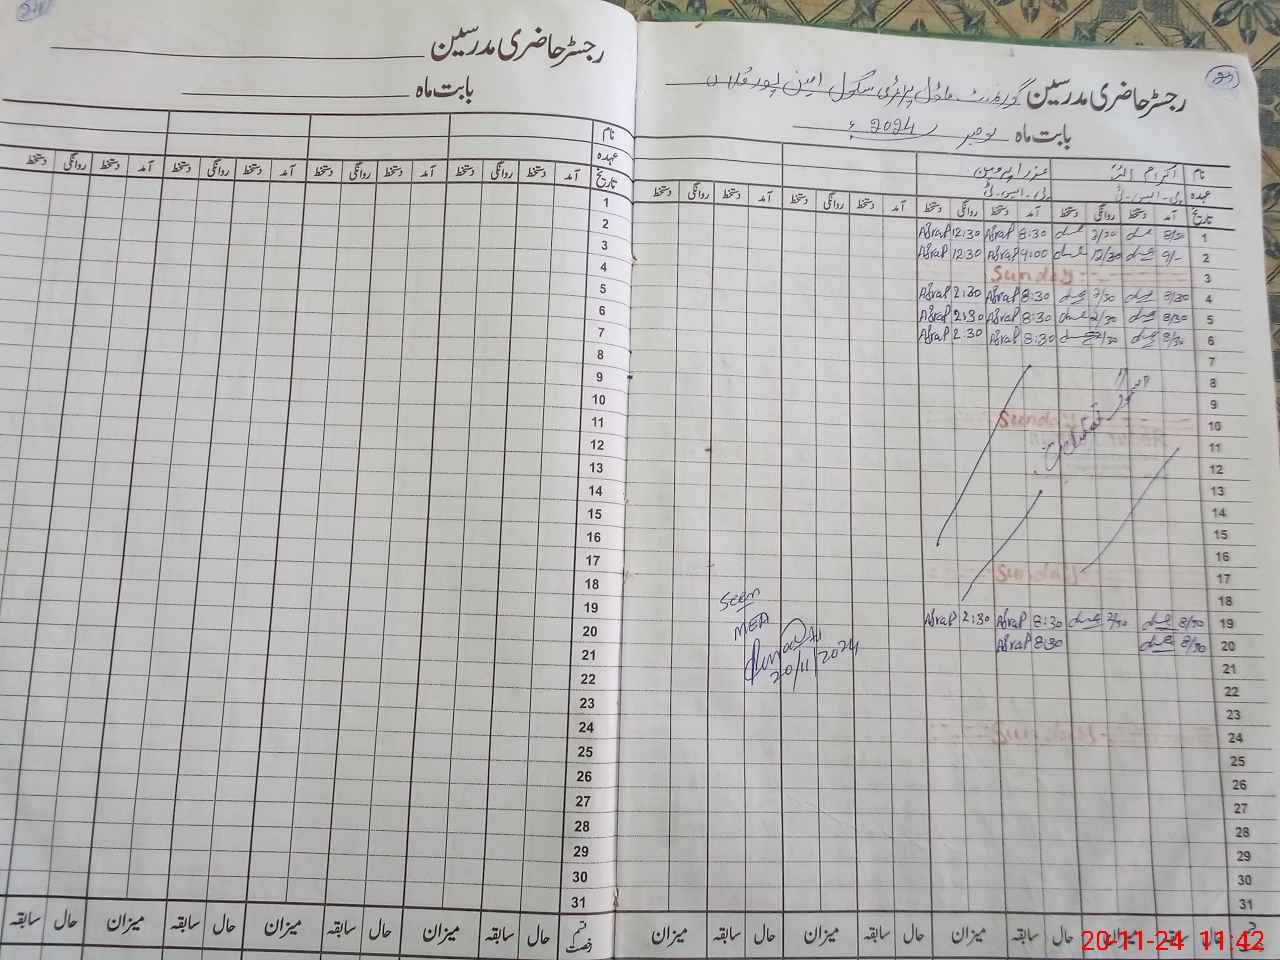 رجسٹر حاضری مدرسین گورنمنٹ ماڈل پرائمری سکول امین پور
23
بابت ماہ نومبر 2024ء
نام اکرام اللہ
عہدہ پی۔ ایس۔ ٹی پی۔ ایس۔ ٹی
تاریخ آمد دستخط روانگی دستخط آمد دستخط روانگی دستخط آمد دستخط روانگی دستخط آمد دستخط روانگی دستخط
1 8/30 2/30 8:30 12:30
2 9/- 12/30 9:00 12:30
3 Sunday
4 8/30 2/30 8:30 2:30
5 8/30 2/30 8:30 2:30
6 8/30 2/30 8:30 2:30
7
8
9
10 Sunday
11
12
13
14
15
16
17 Sunday
18
19 8/30 2/30 8:30 2:30
20 8/30 8:30
21
22
23
24 Sunday
25
26
27
28
29
30
31
Seen
MEA
20/11/2024
حال سابقہ میزان حال سابقہ میزان حال سابقہ میزان
رجسٹر حاضری مدرسین
24
بابت ماہ
نام
عہدہ
تاریخ آمد دستخط روانگی دستخط آمد دستخط روانگی دستخط آمد دستخط روانگی دستخط آمد دستخط روانگی دستخط
1
2
3
4
5
6
7
8
9
10
11
12
13
14
15
16
17
18
19
20
21
22
23
24
25
26
27
28
29
30
31
قسم رخصت حال سابقہ میزان حال سابقہ میزان حال سابقہ میزان حال سابقہ
20-11-24 11:42